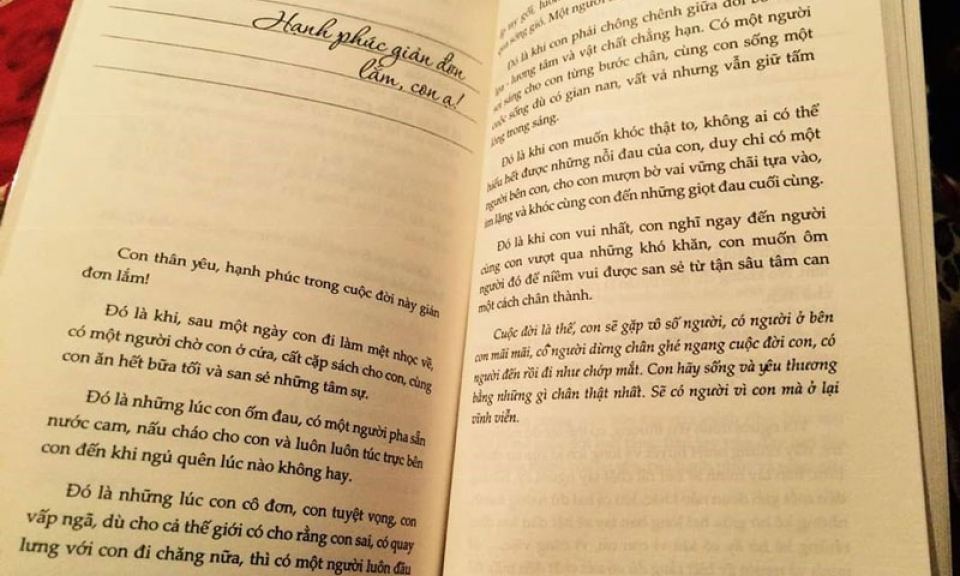 Hạnh phúc giản đơn
lắm, con ạ!
Con thân yêu, hạnh phúc trong cuộc đời này giản
đơn lắm!
Đó là khi, sau một ngày con đi làm mệt nhọc về,
có một người chờ con ở cửa, cất cặp sách cho con, cùng
con ăn hết bữa tối và san sẻ những tâm sự.
Đó là những lúc con ốm đau, có một người pha sẵn
nước cam, nấu cháo cho con và luôn luôn túc trực bên
con đến khi ngủ quên lúc nào không hay.
Đó là những lúc con cô đơn, con tuyệt vọng, con
vấp ngã, dù cho cả thế giới có cho rằng con sai, có quay
lưng với con đi chăng nữa, thì có một người luôn đầu
ấp tay gối,
qua sóng gió. Một người
Đó là khi con phải chông chênh giữa đôi
lựa - lương tâm và vật chất chẳng hạn. Có một người
soi sáng cho con từng bước chân, cùng con sống một
cuộc sống dù có gian nan, vất vả nhưng vẫn giữ tấm
lòng trong sáng.
Đó là khi con muốn khóc thật to, không ai có thể
hiểu hết được những nỗi đau của con, duy chỉ có một
người bên con, cho con mượn bờ vai vững chãi tựa vào,
im lặng và khóc cùng con đến những giọt đau cuối cùng.
Đó là khi con vui nhất, con nghĩ ngay đến người
cùng con vượt qua những khó khăn, con muốn ôm
người đó để niềm vui được san sẻ từ tận sâu tâm can
một cách chân thành.
Cuộc đời là thế, con sẽ gặp vô số người, có người ở bên
con mãi mãi, có người dừng chân ghé ngang cuộc đời con, có
người đến rồi đi như chớp mắt. Con hãy sống và yêu thương
bằng những gì chân thật nhất. Sẽ có người vì con mà ở lại
vĩnh viễn.